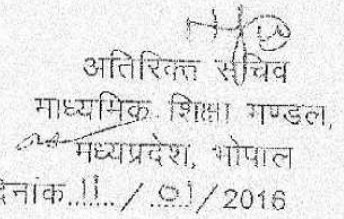 अतिरिक्त सचिव
माध्यमिक शिक्षा मण्डल,
मध्यप्रदेश, भोपाल
दिनांक..11../..01../2016